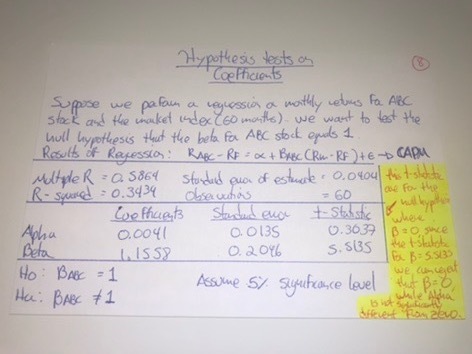 Hypothesis tests on
Coefficients
8
Suppose we perform a regression a monthly returns for ABC
stock and the market index (60 months). we want to test the
null hypothesis that the beta for ABC stock equals 1.
Results of Regression: RABC - RF = α + BABC (Rm - RF) + ϵ → CAPM
Multiple R = 0.5864 Standard error of estimate = 0.0404
R-squared = 0.3439 Observations = 60
Coefficients Standard error t-Statistic
Alpha 0.0041 0.0135 0.3037
Beta 1.1558 0.2096 5.5135
Ho: BABC = 1
Assume 5% significance level
Ha: BABC ≠ 1
this t-statistic
are for the
null hypothesis
where
β = 0, since
the t-statistic
for β = 5.5135
we can reject
that β = 0,
while Alpha
is not significantly
different from zero.